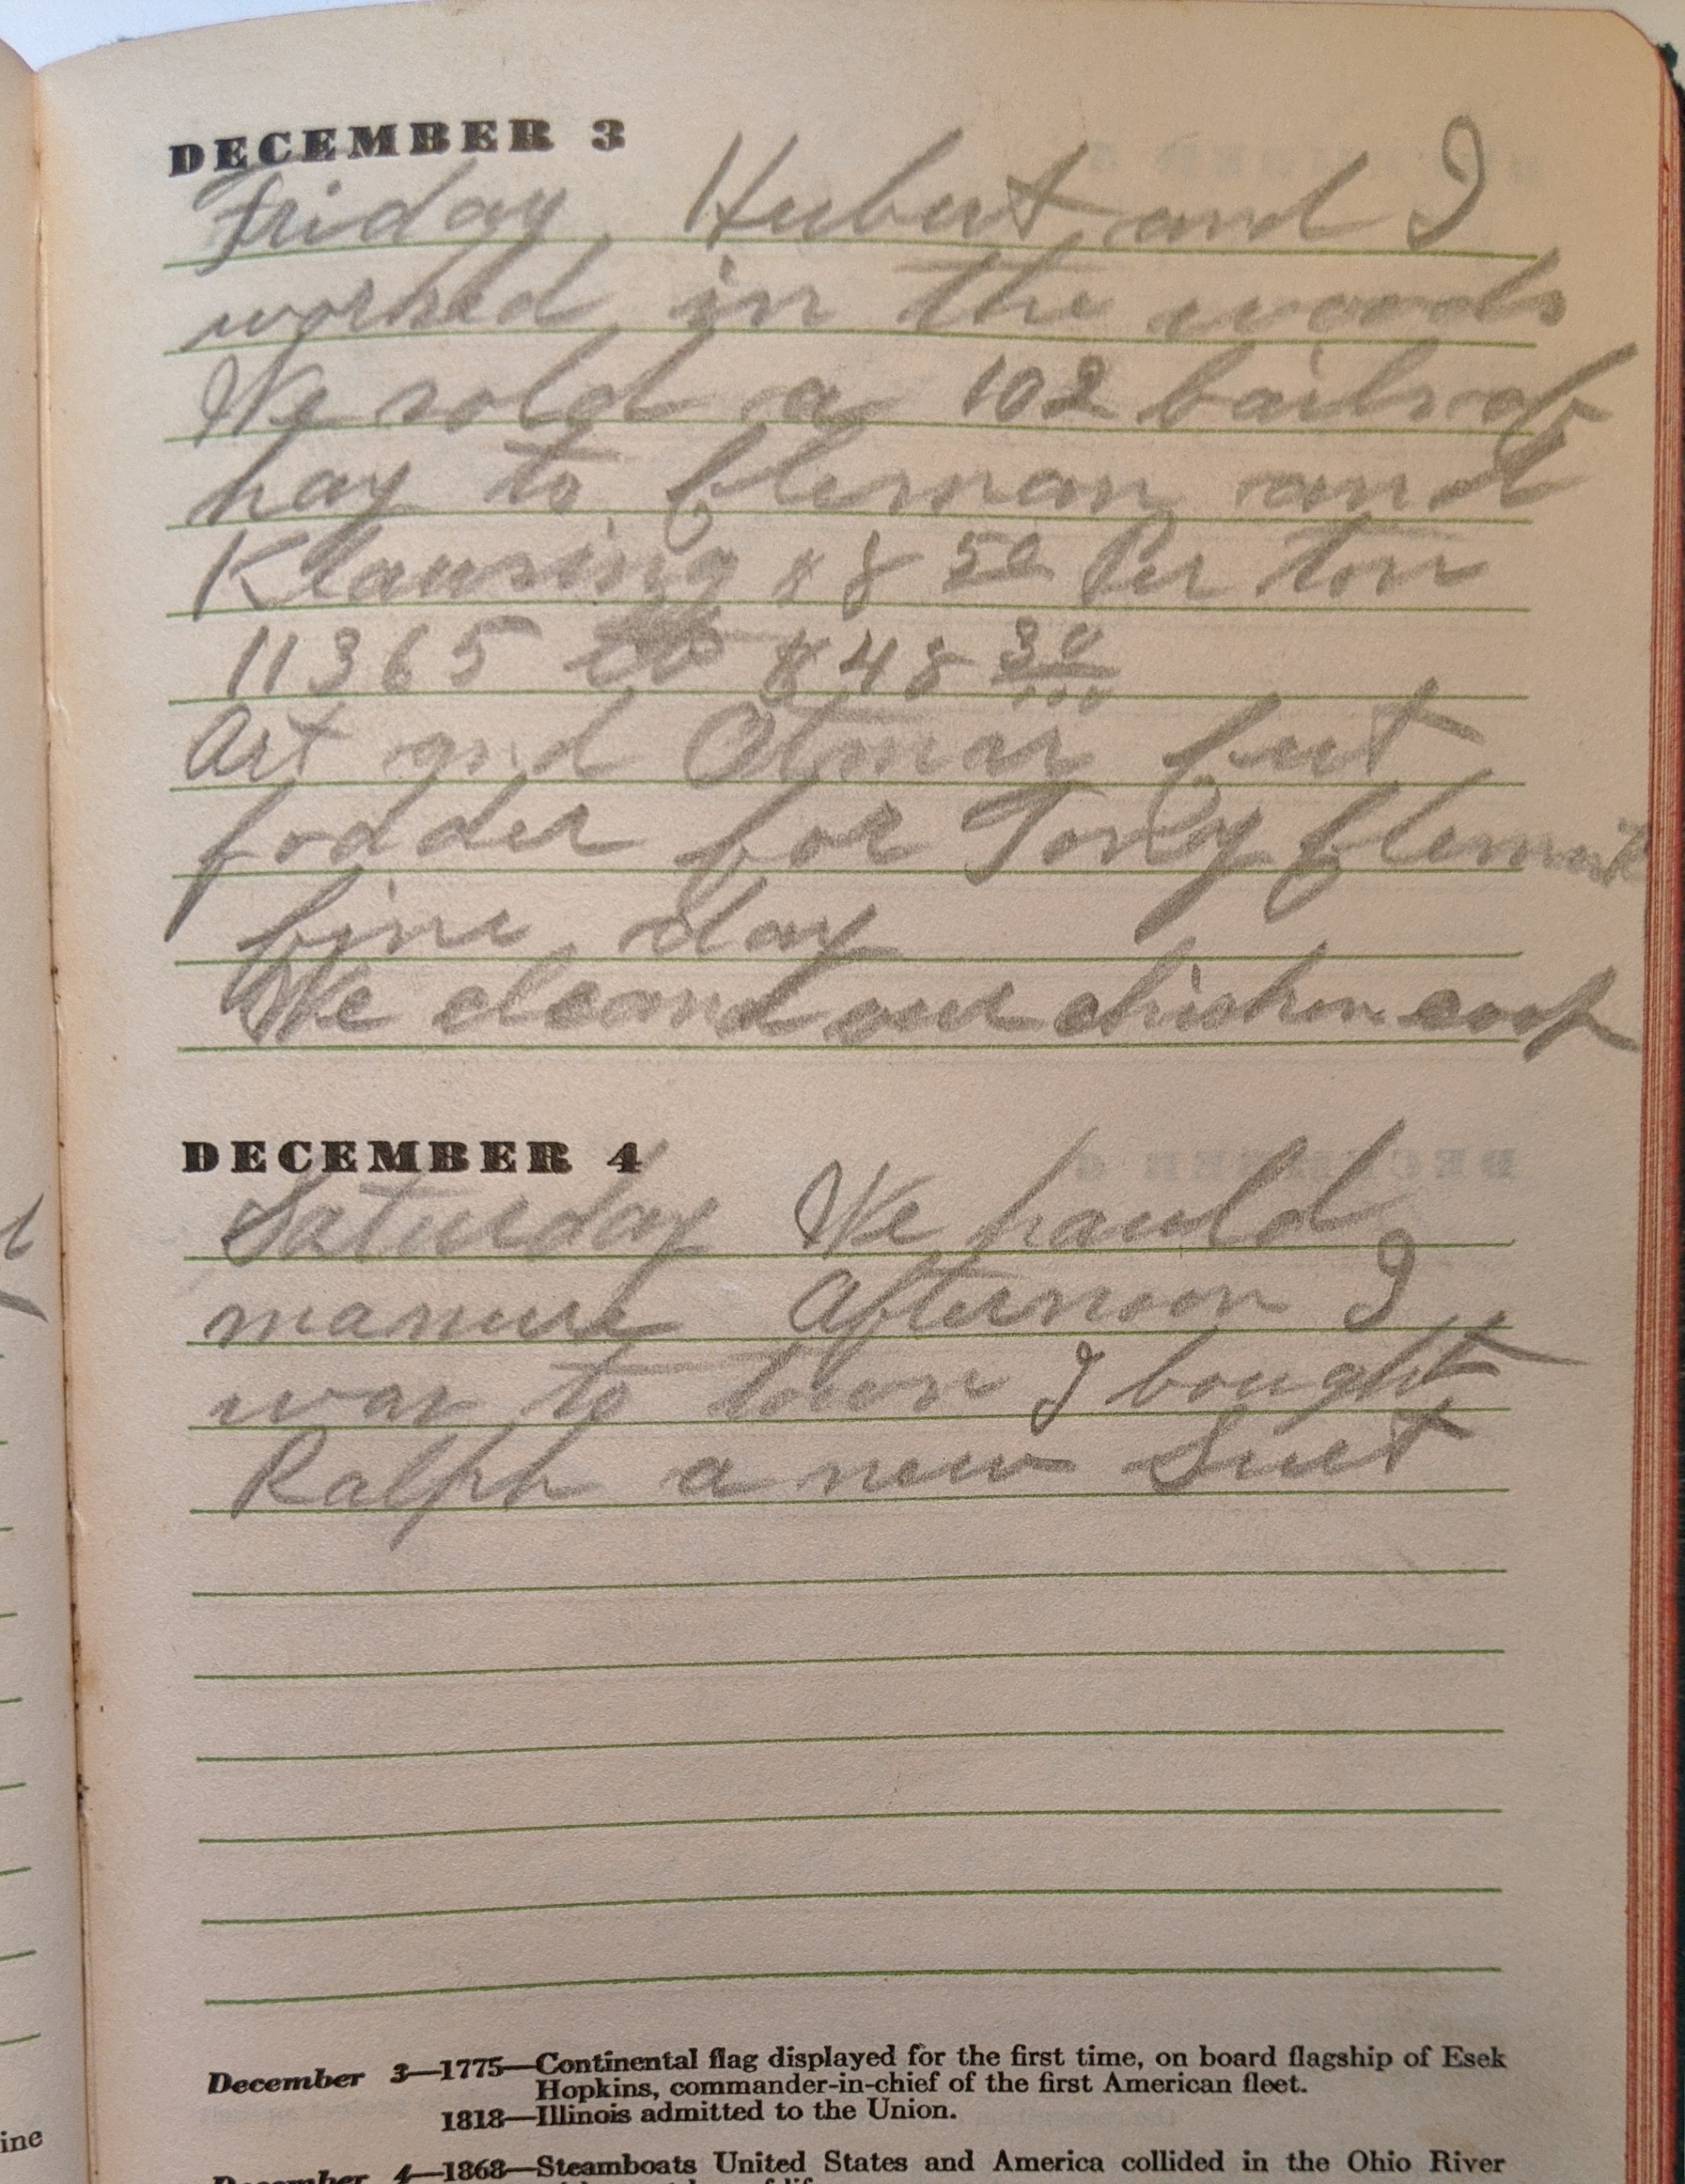 DECEMBER 3
Friday Hubert and I
worked in the woods
We sold a 102 bails of
hay to fleman and
Klausing $8 50 Per ton
11365 lb $48 30/100
Art and Otmar
fodder for Tony
fine day
We cleand our chicken coop
DECEMBER 4
Saturday We hauld
manure Afternoon I
was to town I bought
Ralph a new Suet
December 3—1775—Continental flag displayed for the first time, on board flagship of Esek
Hopkins, commander-in-chief of the first American fleet.
1818—Illinois admitted to the Union.
December 4—1868—Steamboats United States and America collided in the Ohio River
ine